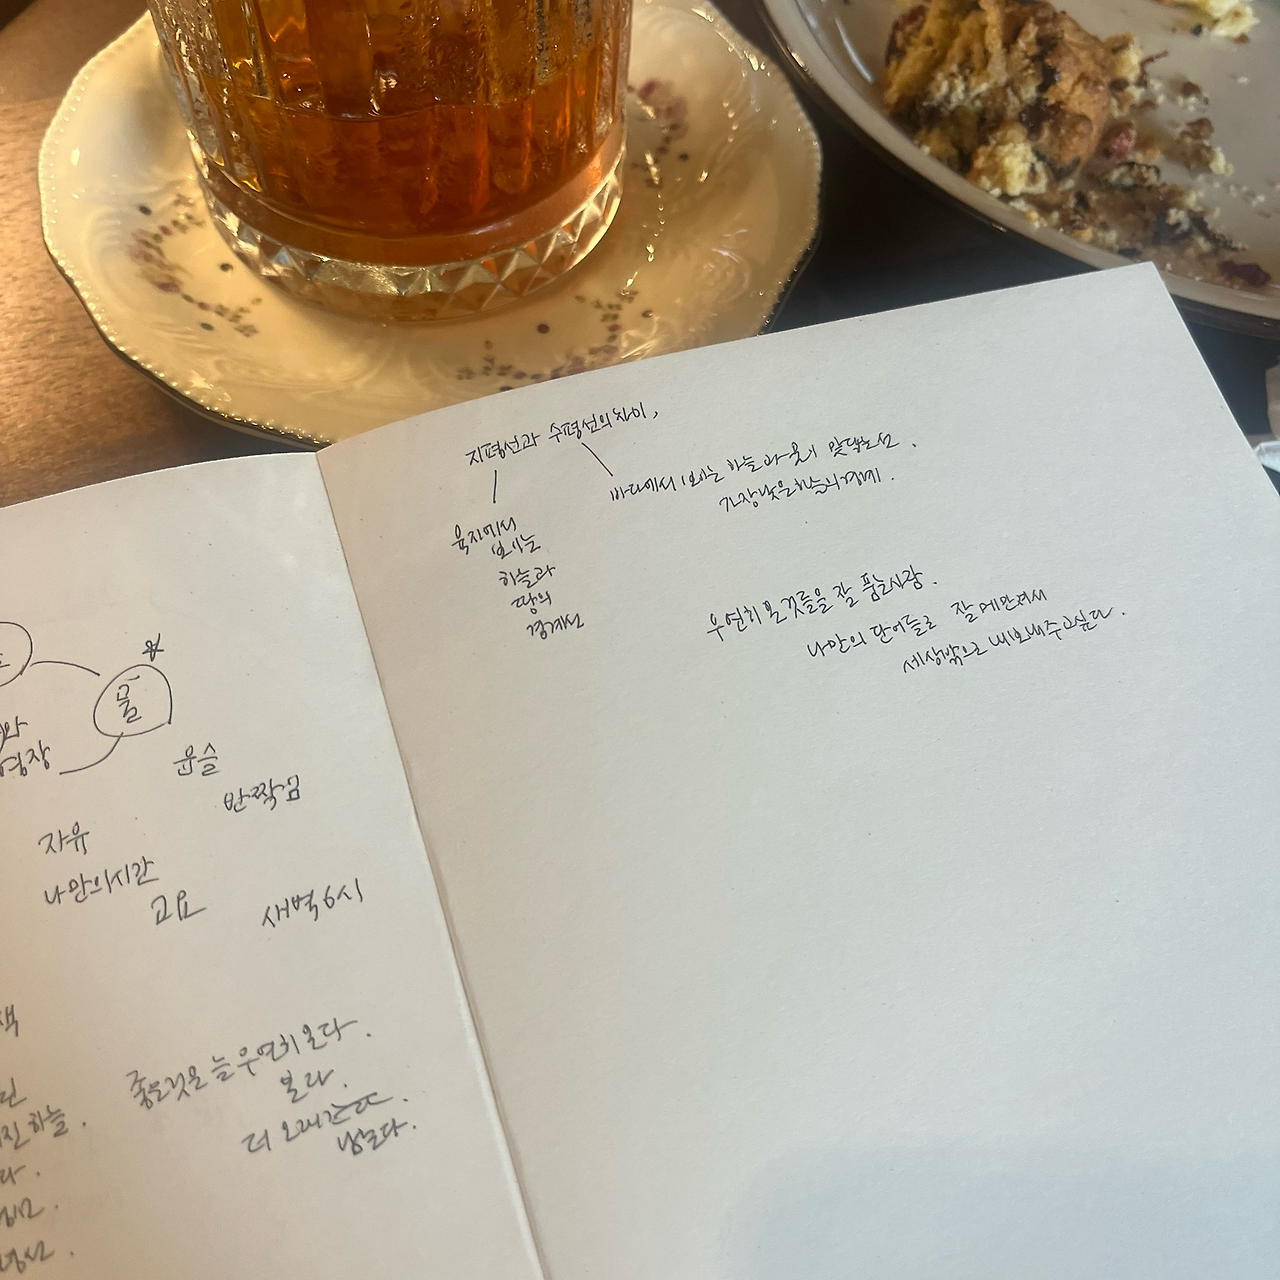 물
운슬
반짝임
자유
나만의시간
고요
새벽 6시
좋은것은 늘 우연히 온다.
본다.
더 오래
남는다.
진 하늘.
지평선과 수평선의 차이,
바다에서 보이는 하늘과 물이 맞닿는선.
가장낮은하늘의경계.
육지에서
보이는
하늘과
땅의
경계선
우연히 온 것들을 잘 품는사람.
나만의 단어들로 잘 매만져서
세상밖으로 내보내주고싶다.